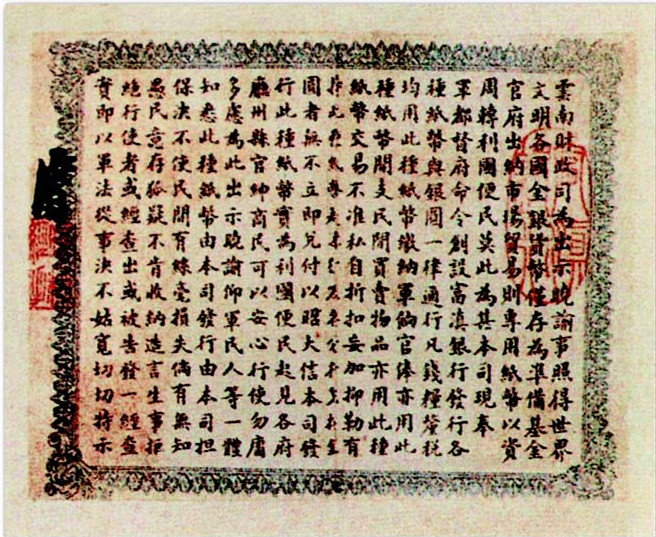 雲南財政司為出示曉諭事照得世界
文明各國金銀貨幣僅存為準備基金
官府出納市場貿易則專用紙幣以資
周轉利國便民莫此為甚本司現奉
軍都督府命令創設富滇銀行發行各
種紙幣與銀圓一律通行凡錢糧釐稅
均用此種紙幣繳納軍餉官俸亦用此
種紙幣開支民間買賣物品亦用此種
紙幣交易不准私自折扣妄加抑勒有
此
圓者無不立即兌付以昭大信本司發
行此種紙幣實為利國便民起見各府
廳州縣官紳商民可以安心行使勿庸
多慮為此出示曉諭仰軍民人等一體
知悉此種紙幣由本司發行由本司担
保決不使民間有絲毫損失倘有無知
愚民竟存狐疑不肯收納造言生事拒
絕行使者或經查出或被告發一經查
實即以軍法從事決不姑寬切切特示